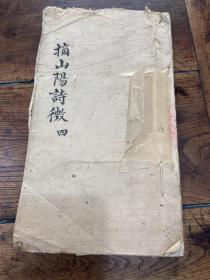 摘山陽詩徵 四